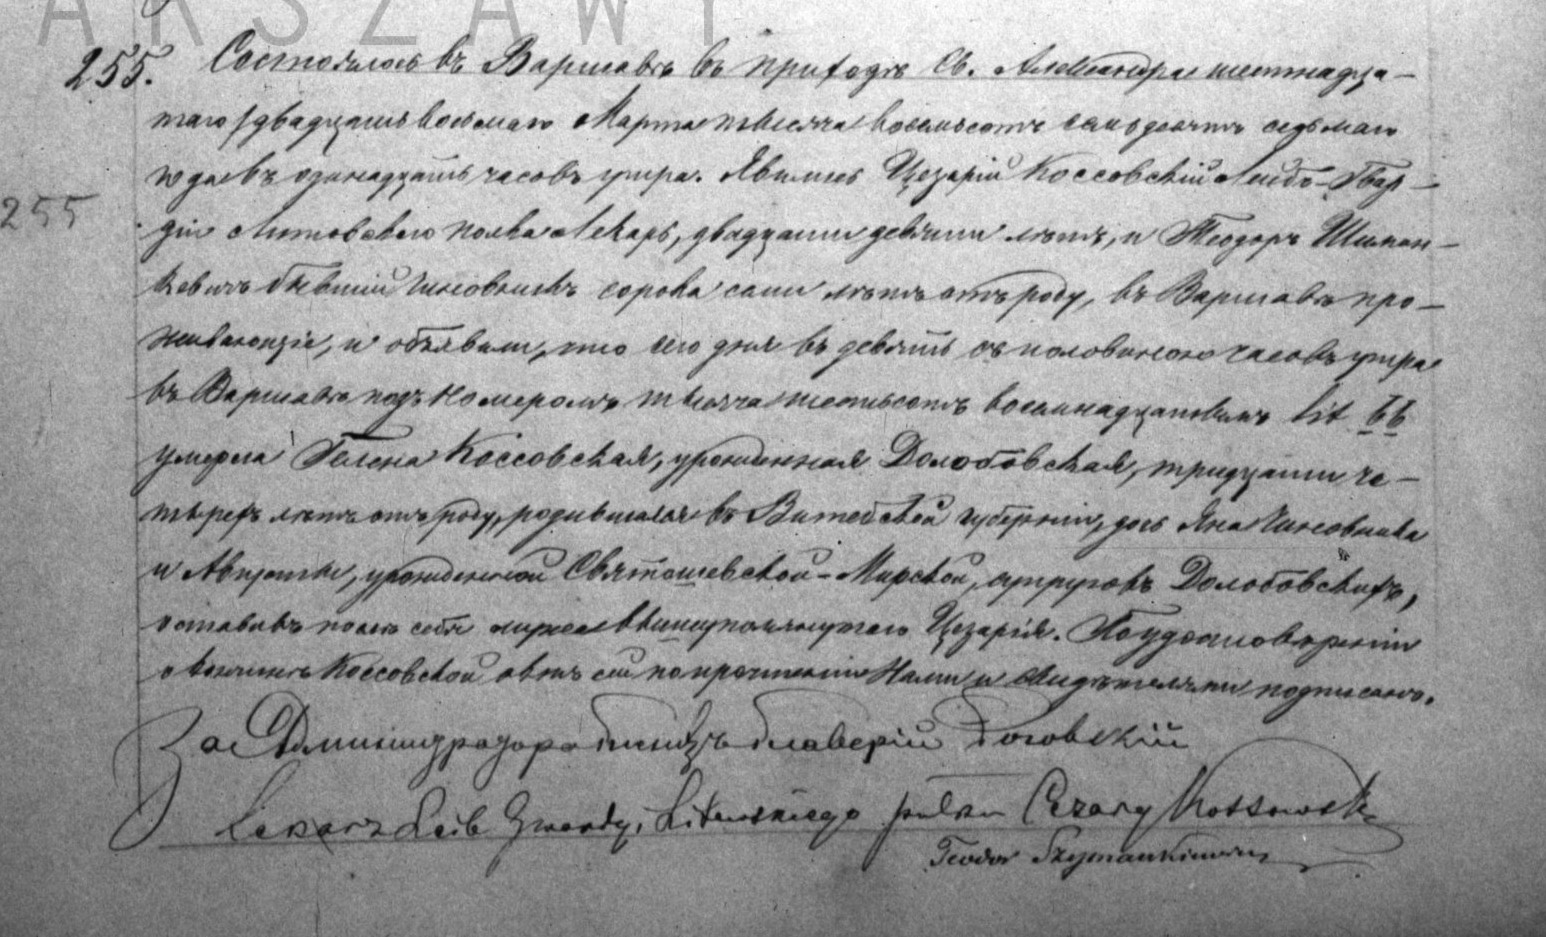 ARSZAWY
255. Состоялось въ Варшавѣ въ приходѣ Св. Александра шестнадца-
таго/двадцать восьмаго Марта тысяча восемьсотъ семьдесятъ седьмаго
года въ одинадцать часовъ утра. Явились Цезарій Коссовскій Лейбъ-Гвар-
255
діи Литовскаго полка Лекарь, двадцати девяти лѣтъ, и Теодоръ Шиман-
кевичъ бывшій чиновникъ сорока семи лѣтъ отъ роду, въ Варшавѣ про-
живающіе, и объявили, что сего дня въ девять съ половиною часовъ утра
въ Варшавѣ подъ номеромъ тысяча шестьсотъ восемнадцатымъ lit
умерла Гелена Коссовская, урожденная Долобовская, тридцати че-
тырехъ лѣтъ отъ роду, родившаяся въ Витебской губерніи, дочь Яна чиновника
и Августы, урожденной Святошевской-Мирской, супруговъ Долобовскихъ,
оставивъ послѣ себя мужа вышеупомянутаго Цезарія. По удостовѣреніи
о кончинѣ Коссовской актъ сей по прочтеніи Нами и Свидѣтелями подписанъ.
За Администратора
Lekarz Leib Gwardyi Litewskiego pułku Cezary Kossowski
Teodor Szymankiewicz